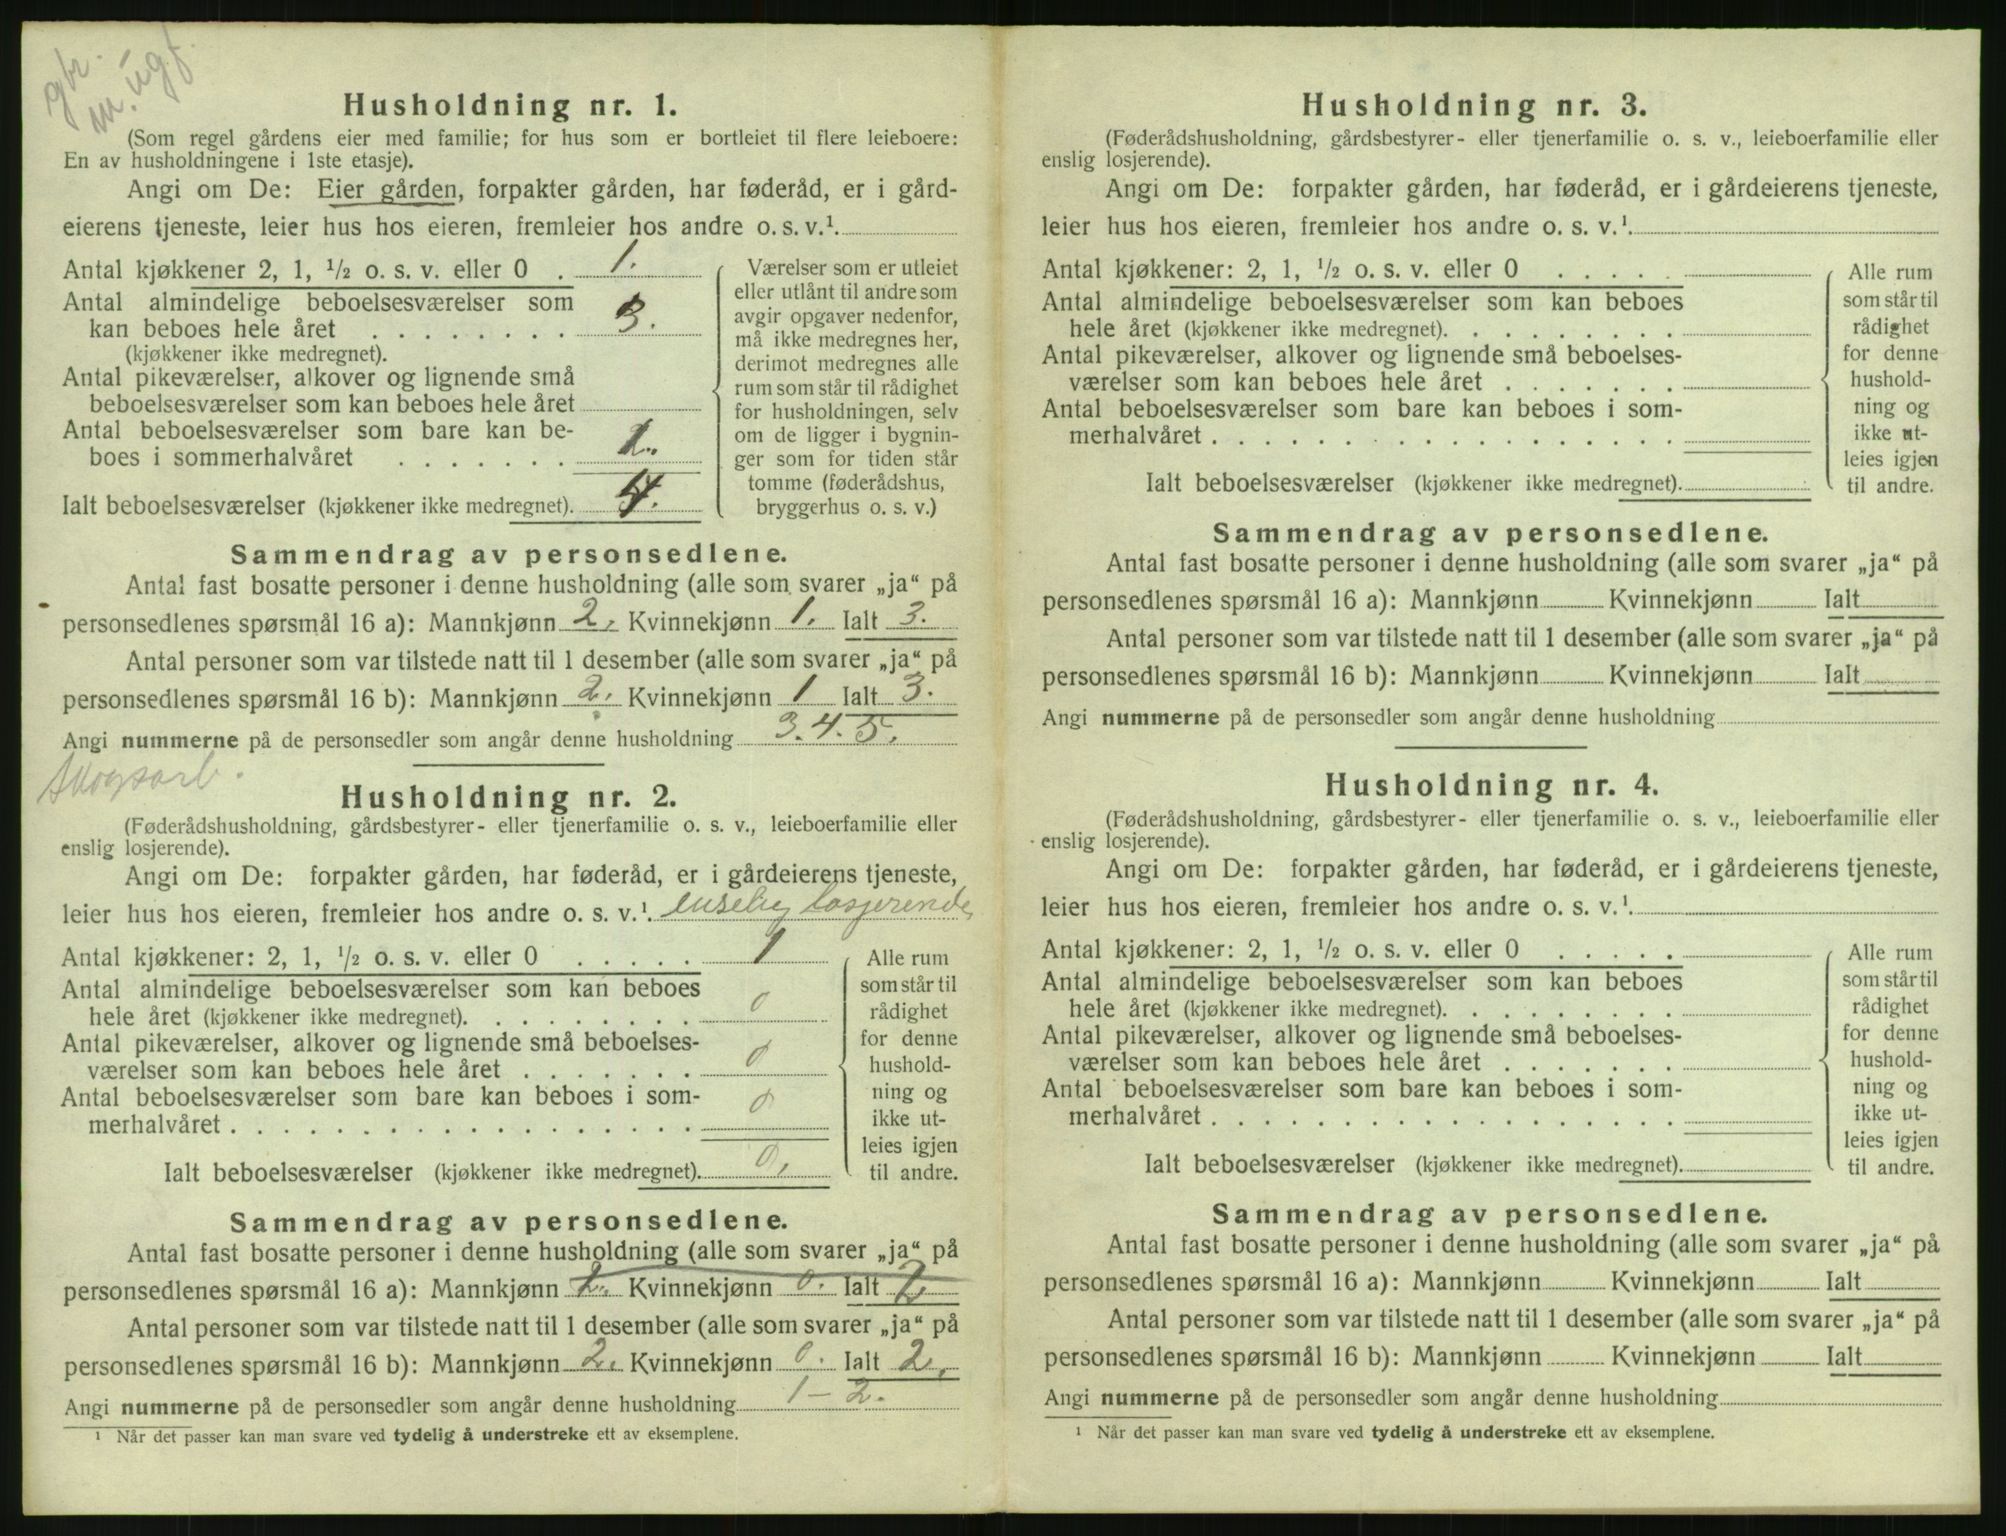 gbr.
m. ugf.
Husholdning nr. 1.
(Som regel gårdens eier med familie; for hus som er bortleiet til flere leieboere:
En av husholdningene i 1ste etasje).
Angi om De: Eier gården, forpakter gården, har føderåd, er i gård-
eierens tjeneste, leier hus hos eieren, fremleier hos andre o. s. v.¹.
Antal kjøkkener 2, 1, ½ o. s. v. eller 0 . 1.
Antal almindelige beboelsesværelser som
kan beboes hele året . . . . . . . . 3.
(kjøkkener ikke medregnet).
Antal pikeværelser, alkover og lignende små
beboelsesværelser som kan beboes hele året
Antal beboelsesværelser som bare kan be-
boes i sommerhalvåret . . . . . . . 1.
Ialt beboelsesværelser (kjøkkener ikke medregnet). 4.
Værelser som er utleiet
eller utlånt til andre som
avgir opgaver nedenfor,
må ikke medregnes her,
derimot medregnes alle
rum som står til rådighet
for husholdningen, selv
om de ligger i bygnin-
ger som for tiden står
tomme (føderådshus,
bryggerhus o. s. v.)
Sammendrag av personsedlene.
Antal fast bosatte personer i denne husholdning (alle som svarer „ja“ på
personsedlenes spørsmål 16 a): Mannkjønn 2. Kvinnekjønn 1. Ialt 3.
Antal personer som var tilstede natt til 1 desember (alle som svarer „ja“ på
personsedlenes spørsmål 16 b): Mannkjønn 2. Kvinnekjønn 1 Ialt 3.
Angi nummerne på de personsedler som angår denne husholdning 3. 4. 5.
Skogsarb.
Husholdning nr. 2.
(Føderådshusholdning, gårdsbestyrer- eller tjenerfamilie o. s. v., leieboerfamilie eller
enslig losjerende).
Angi om De: forpakter gården, har føderåd, er i gårdeierens tjeneste,
leier hus hos eieren, fremleier hos andre o. s. v.¹. enselig losjerende
Antal kjøkkener: 2, 1, ½ o. s. v. eller 0 . . . . . 1
Antal almindelige beboelsesværelser som kan beboes
hele året (kjøkkener ikke medregnet). . . . . . . . . 0
Antal pikeværelser, alkover og lignende små beboelses-
værelser som kan beboes hele året . . . . . . . 0
Antal beboelsesværelser som bare kan beboes i som-
merhalvåret . . . . . . . . . . . . . . . . . . 0
Ialt beboelsesværelser (kjøkkener ikke medregnet). 0.
Alle rum
som står til
rådighet
for denne
hushold-
ning og
ikke ut-
leies igjen
til andre.
Sammendrag av personsedlene.
Antal fast bosatte personer i denne husholdning (alle som svarer „ja“ på
personsedlenes spørsmål 16 a): Mannkjønn 2. Kvinnekjønn 0. Ialt 2
Antal personer som var tilstede natt til 1 desember (alle som svarer „ja“ på
personsedlenes spørsmål 16 b): Mannkjønn 2. Kvinnekjønn 0. Ialt 2.
Angi nummerne på de personsedler som angår denne husholdning 1 - 2.
¹ Når det passer kan man svare ved tydelig å understreke ett av eksemplene.
Husholdning nr. 3.
(Føderådshusholdning, gårdsbestyrer- eller tjenerfamilie o. s. v., leieboerfamilie eller
enslig losjerende).
Angi om De: forpakter gården, har føderåd, er i gårdeierens tjeneste,
leier hus hos eieren, fremleier hos andre o. s. v.¹.
Antal kjøkkener: 2, 1, ½ o. s. v. eller 0 . . . . .
Antal almindelige beboelsesværelser som kan beboes
hele året (kjøkkener ikke medregnet). . . . . . . . .
Antal pikeværelser, alkover og lignende små beboelses-
værelser som kan beboes hele året . . . . . . .
Antal beboelsesværelser som bare kan beboes i som-
merhalvåret . . . . . . . . . . . . . . . . . .
Ialt beboelsesværelser (kjøkkener ikke medregnet).
Alle rum
som står til
rådighet
for denne
hushold-
ning og
ikke ut-
leies igjen
til andre.
Sammendrag av personsedlene.
Antal fast bosatte personer i denne husholdning (alle som svarer „ja“ på
personsedlenes spørsmål 16 a): Mannkjønn Kvinnekjønn Ialt
Antal personer som var tilstede natt til 1 desember (alle som svarer „ja“ på
personsedlenes spørsmål 16 b): Mannkjønn Kvinnekjønn Ialt
Angi nummerne på de personsedler som angår denne husholdning
Husholdning nr. 4.
(Føderådshusholdning, gårdsbestyrer- eller tjenerfamilie o. s. v., leieboerfamilie eller
enslig losjerende).
Angi om De: forpakter gården, har føderåd, er i gårdeierens tjeneste,
leier hus hos eieren, fremleier hos andre o. s. v.¹.
Antal kjøkkener: 2, 1, ½ o. s. v. eller 0 . . . . .
Antal almindelige beboelsesværelser som kan beboes
hele året (kjøkkener ikke medregnet). . . . . . . . .
Antal pikeværelser, alkover og lignende små beboelses-
værelser som kan beboes hele året . . . . . . .
Antal beboelsesværelser som bare kan beboes i som-
merhalvåret . . . . . . . . . . . . . . . . . .
Ialt beboelsesværelser (kjøkkener ikke medregnet).
Alle rum
som står til
rådighet
for denne
hushold-
ning og
ikke ut-
leies igjen
til andre.
Sammendrag av personsedlene.
Antal fast bosatte personer i denne husholdning (alle som svarer „ja“ på
personsedlenes spørsmål 16 a): Mannkjønn Kvinnekjønn Ialt
Antal personer som var tilstede natt til 1 desember (alle som svarer „ja“ på
personsedlenes spørsmål 16 b): Mannkjønn Kvinnekjønn Ialt
Angi nummerne på de personsedler som angår denne husholdning
¹ Når det passer kan man svare ved tydelig å understreke ett av eksemplene.